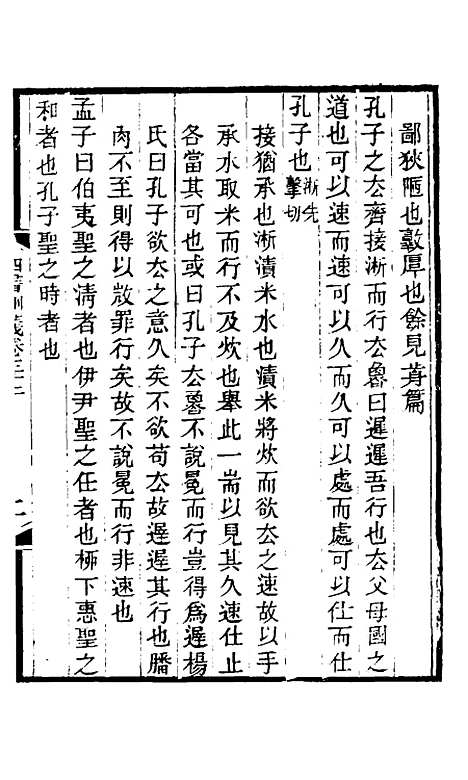 鄙狄陋也敦厚也餘見前篇
孔子之去齊接淅而行去魯曰遲遲吾行也去父母國之
道也可以速而速可以久而久可以處而處可以仕而仕
孔子也淅先擊切
接猶承也淅漬米水也漬米將炊而欲去之速故以手
承水取米而行不及炊也舉此一耑以見其久速仕止
各當其可也或曰孔子去魯不說冕而行豈得爲遲楊
氏曰孔子欲去之意久矣不欲苟去故遲遲其行也膰
肉不至則得以㣲罪行矣故不說冕而行非速也
孟子曰伯夷聖之淸者也伊尹聖之任者也桺下惠聖之
和者也孔子聖之時者也
四書訓義卷三十二